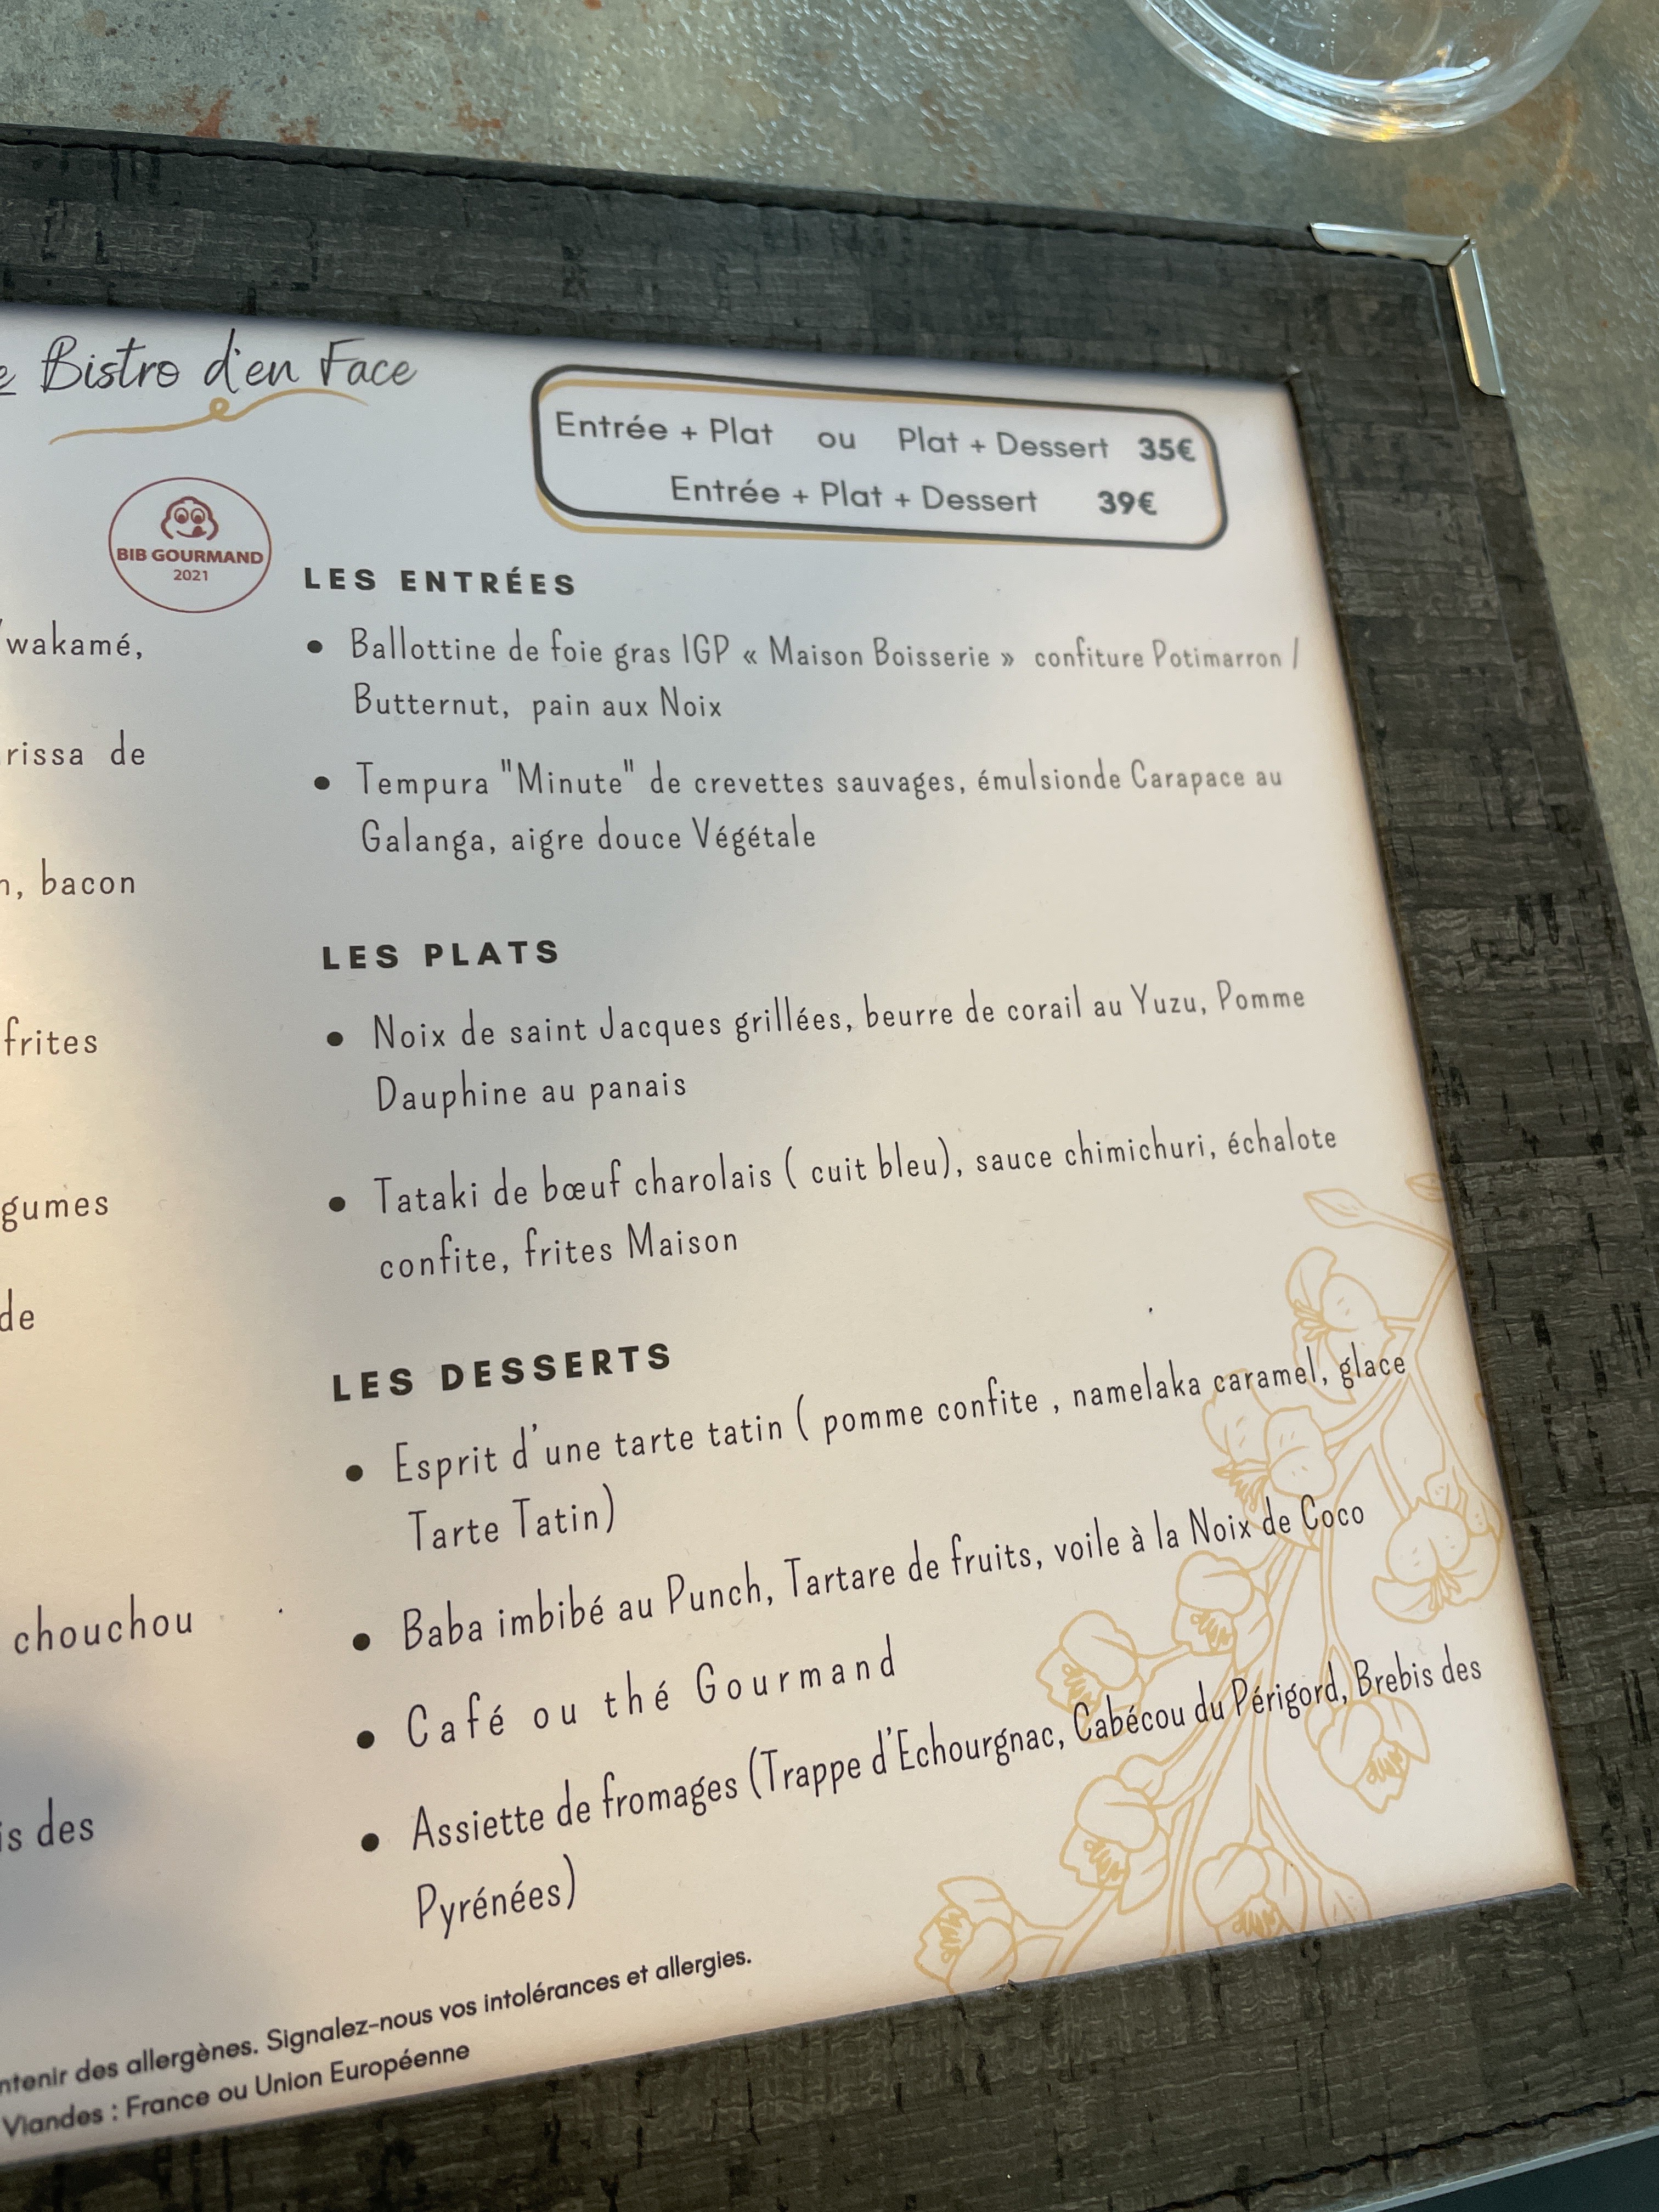 Bistro d'en Face
Entrée + Plat ou Plat + Dessert 35€
Entrée + Plat + Dessert 39€
BIB GOURMAND
2021
wakamé,
de
bacon
frites
de
chouchou
des
LES ENTRÉES
• Ballottine de foie gras IGP « Maison Boisserie » confiture Potimarron /
Butternut, pain aux Noix
• Tempura "Minute" de crevettes sauvages, émulsionde Carapace au
Galanga, aigre douce Végétale
LES PLATS
• Noix de saint Jacques grillées, beurre de corail au Yuzu, Pomme
Dauphine au panais
• Tataki de bœuf charolais ( cuit bleu), sauce chimichuri, échalote
confite, frites Maison
LES DESSERTS
• Esprit d'une tarte tatin ( pomme confite , namelaka caramel, glace
Tarte Tatin)
• Baba imbibé au Punch, Tartare de fruits, voile à la Noix de Coco
• Café ou thé Gourmand
• Assiette de fromages (Trappe d'Echourgnac, Cabécou du Périgord, Brebis des
Pyrénées)
des allergènes. Signalez-nous vos intolérances et allergies.
Viandes : France ou Union Européenne